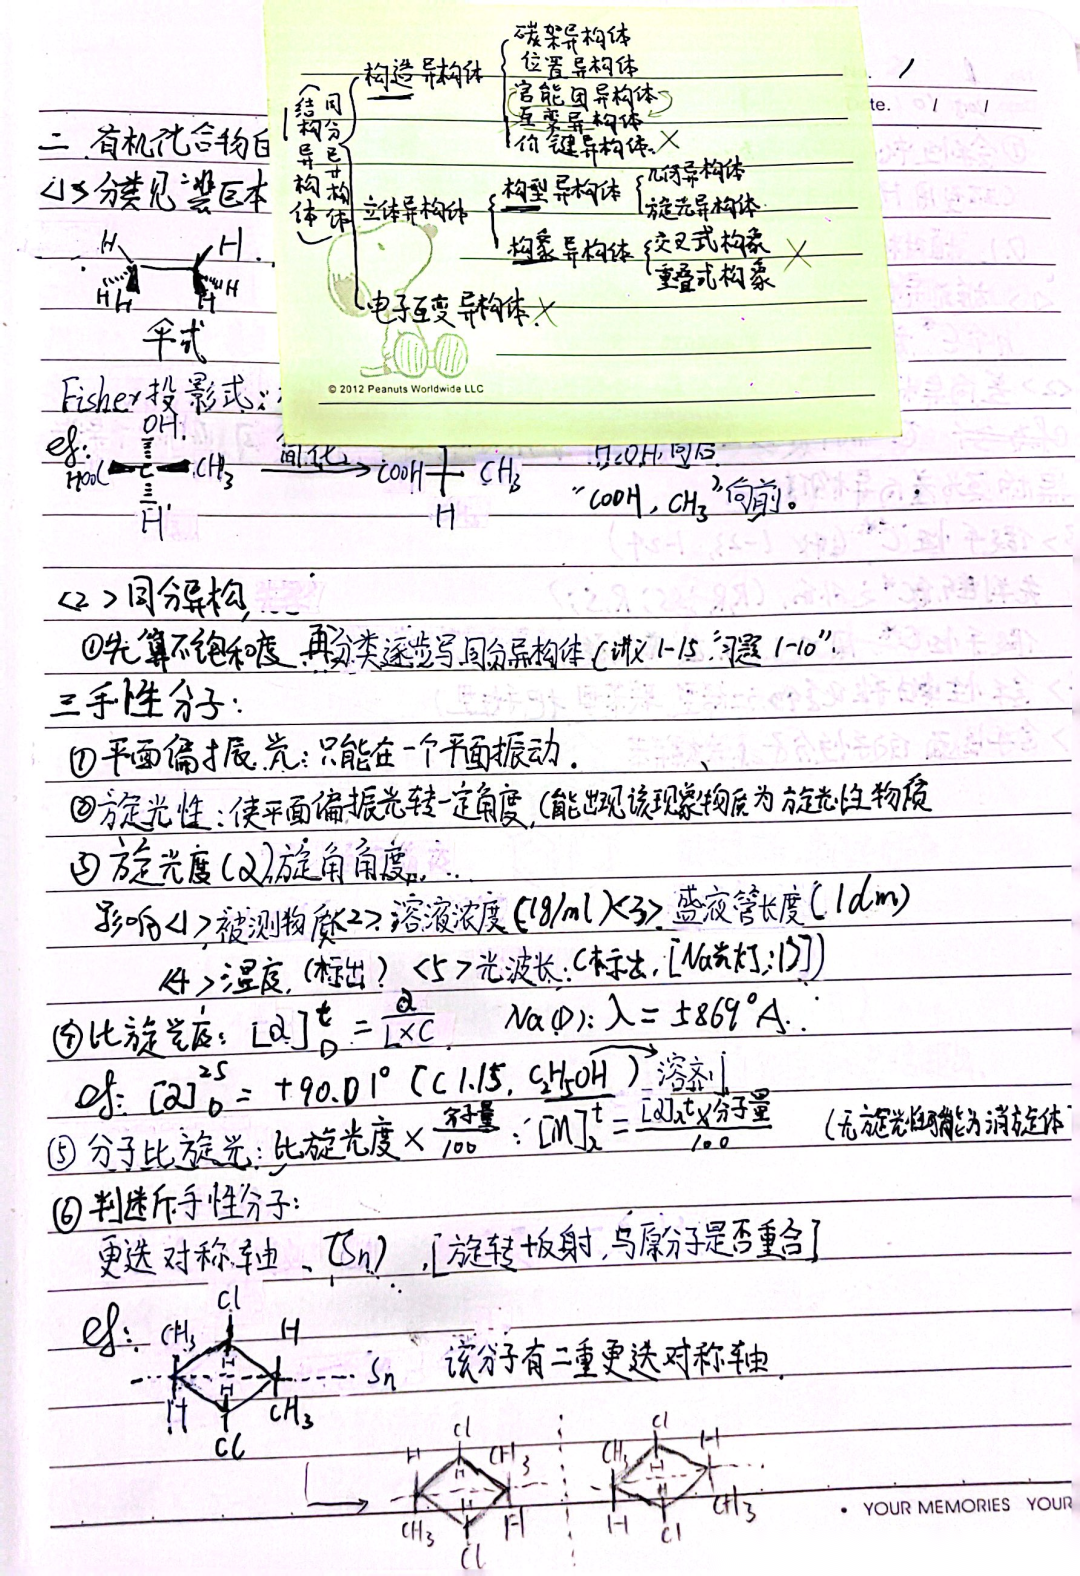 同分异构体
(结构异构体)
构造异构体
碳架异构体
位置异构体
官能团异构体
互变异构体
价键异构体 ×
立体异构体
构型异构体
几何异构体
旋光异构体
构象异构体
交叉式构象
重叠式构象
×
电子互变异构体 ×
© 2012 Peanuts Worldwide LLC
te. / /
二、有机化合物
<1>分类见
H H
H H H H
伞式
Fisher投影式:
eg: OH
HOOC C CH3 简化 COOH CH3
H H
"COOH, CH3"向前。
<2>同分异构
①先算不饱和度 再分类逐步写同分异构体(讲义1-15,习题1-10"
三手性分子:
①平面偏振光:只能在一个平面振动.
②旋光性:使平面偏振光转一定角度,(能出现该现象物质为旋光性物质
③旋光度(α),旋角角度...
影响<1>被测物质<2>溶液浓度(1g/ml)<3>盛液管长度(1dm)
<4>温度,(标出) <5>光波长:(标出,[Na光灯:D])
④比旋光度:[α]tD = α/L×C Na(D): λ = 5869°A.
eg: [α]25D = +90.01° (C 1.15, C2H5OH) 溶剂
⑤分子比旋光:比旋光度×分子量/100 : [M]tλ = [α]λt×分子量/100 (无旋光性可能为消旋体
⑥判断手性分子:
更迭对称轴、(Sn),[旋转+反射,与原分子是否重合]
eg: Cl
CH3 H
H
H Sn 该分子有二重更迭对称轴
H CH3
Cl
H Cl CH3 CH3 Cl H
H H
CH3 H H Cl CH3
Cl
• YOUR MEMORIES YOUR